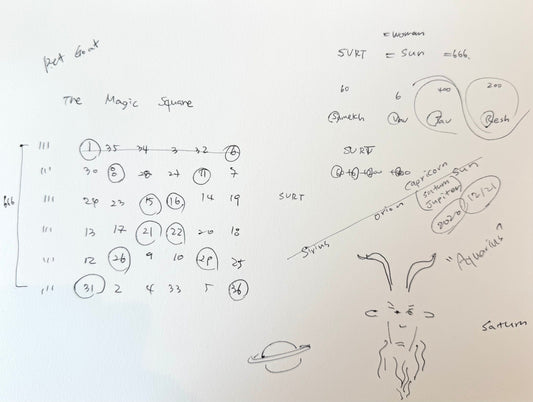 Pet Goat
The Magic Square
111 1 35 34 3 32 6
111 30 8 28 27 11 7
666
111 20 23 15 16 14 19
111 13 17 21 22 20 18
111 12 26 9 10 29 25
111 31 2 4 33 5 36
= woman
SURT = Sun = 666.
60 6 400 200
Samekh Vav Tav Resh
SURT
SURT
Capricorn Sun
Saturn
Jupiter
12/21
2020
Orion
Sirius
"Aquarius"
Saturn